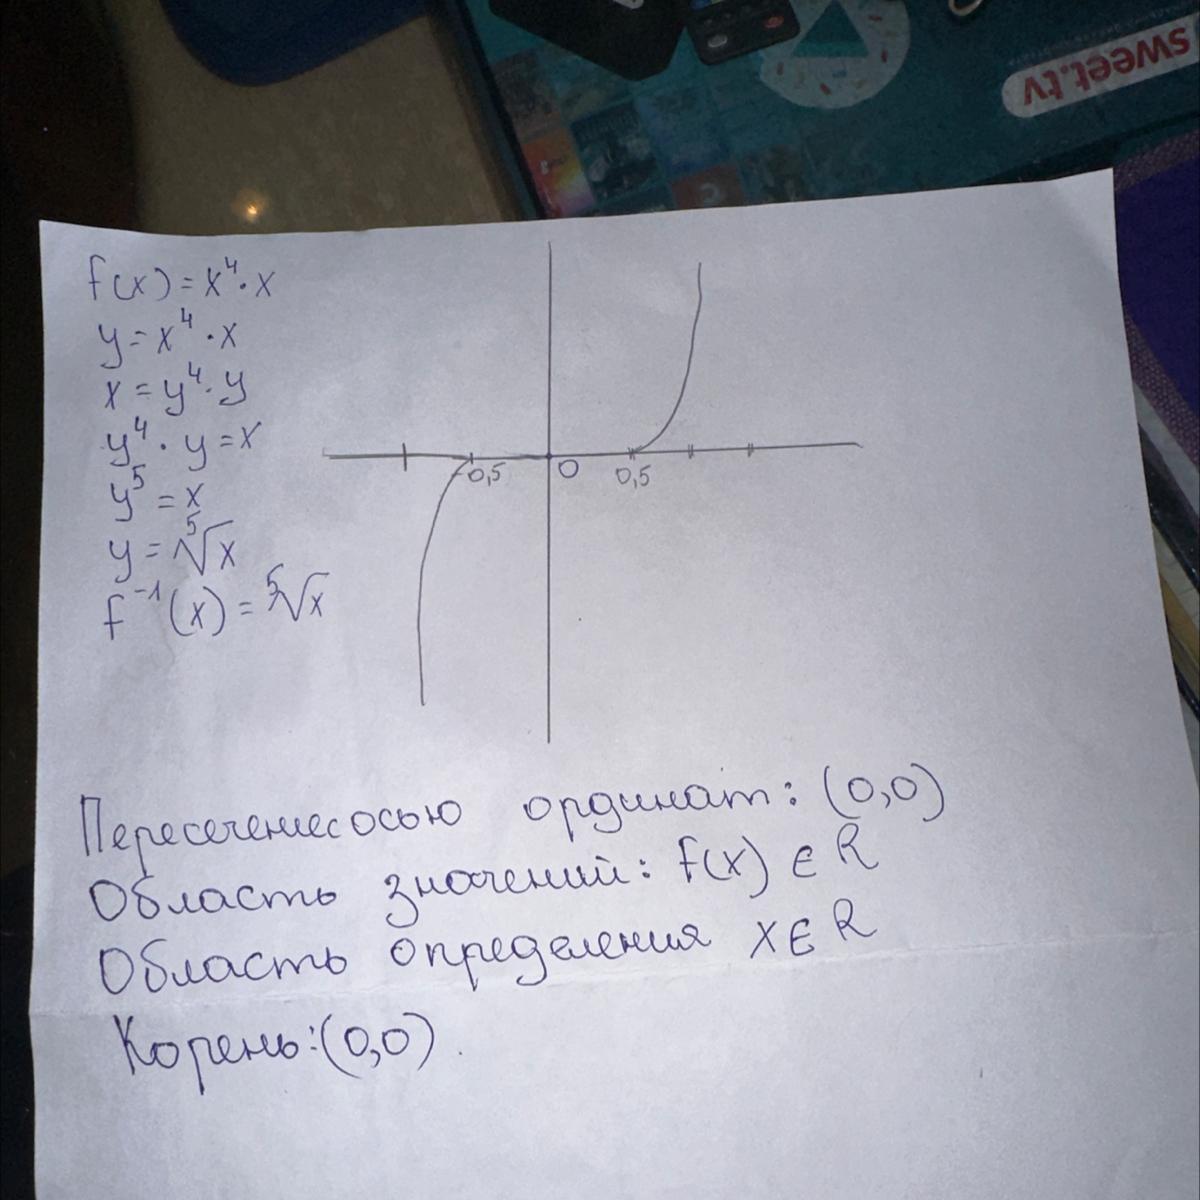 sweet.tv
f(x) = x⁴ · x
y = x⁴ · x
x = y⁴ · y
y⁴ · y = x
y⁵ = x
y = ⁵√x
f⁻¹(x) = ⁵√x
-0,5 0 0,5
Пересечениес осью ординат: (0,0)
Область значений: f(x) ∈ R
Область определения x ∈ R
Корень: (0,0).